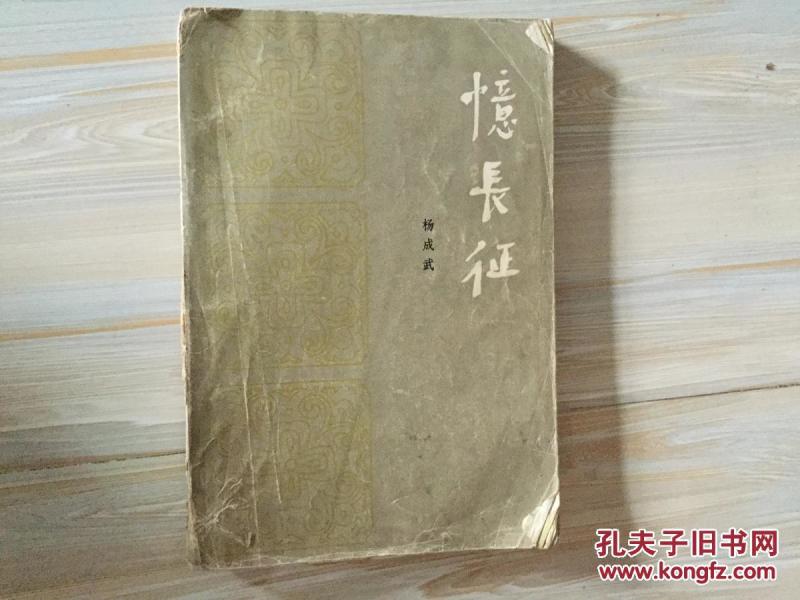 憶長征
杨成武
孔夫子旧书网
www.kongfz.com